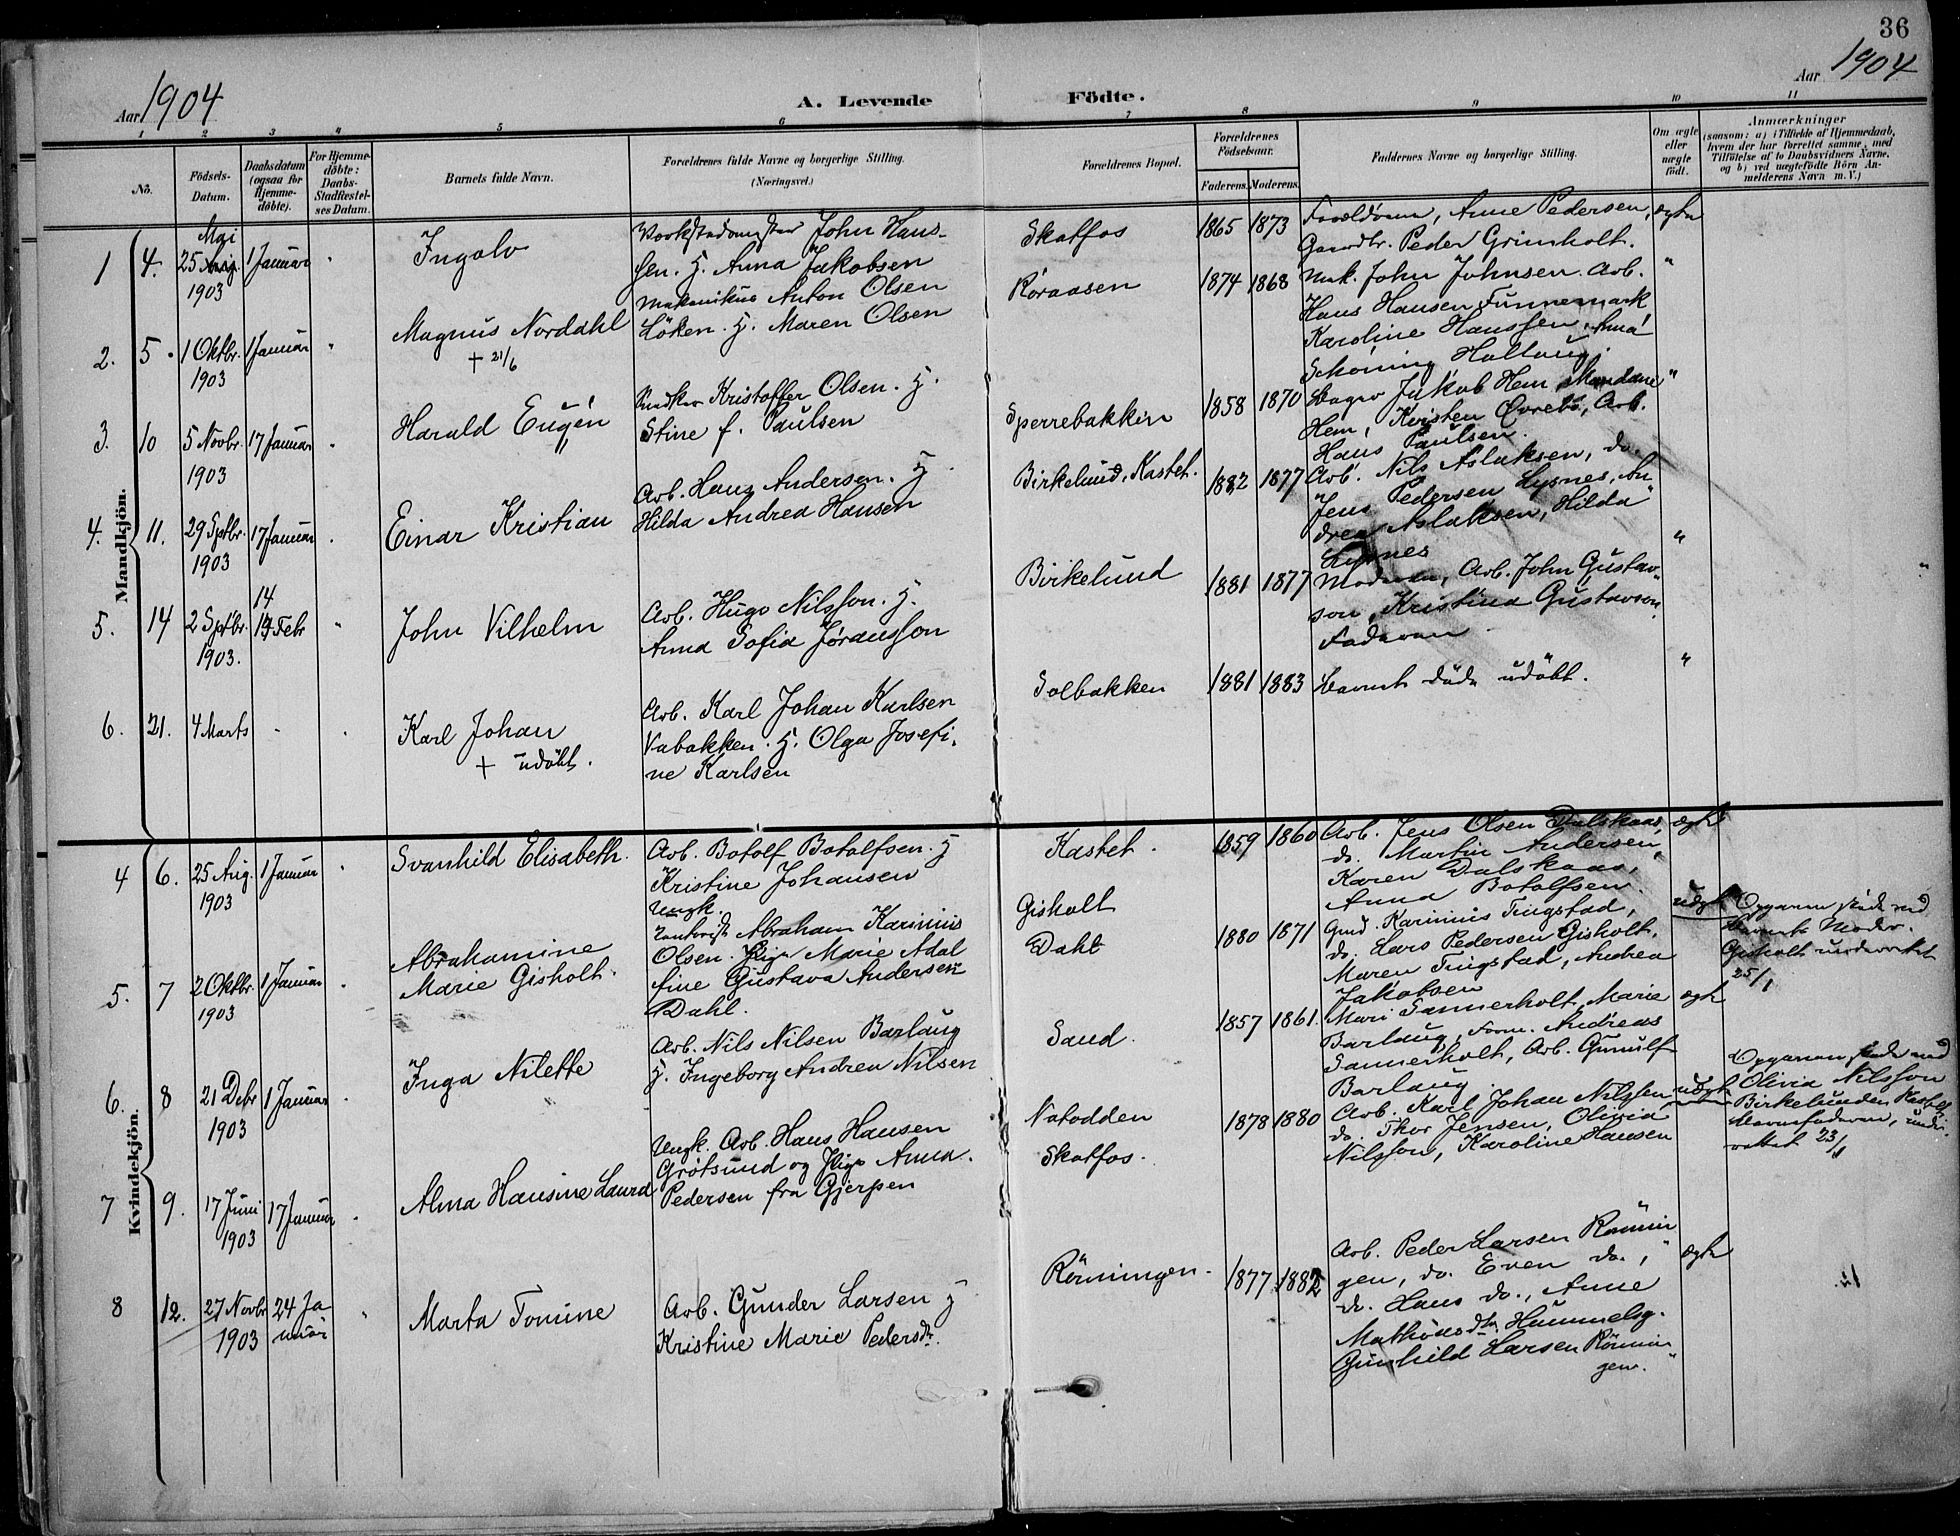 36
Aar 1904
Aar 1904
A. Levende Födte.
1 2 3 4 5 6 7 8 9 10 11
No.
Födsels-Datum.
Daabsdatum (ogsaa for Hjemmedöbte).
For Hjemmedöbte: Daabs-Stadfæstelses Datum.
Barnets fulde Navn.
Forældrenes fulde Navne og borgerlige Stilling. (Næringsvei.)
Forældrenes Bopæl.
Forældrenes Födselsaar.
Faderens. Moderens.
Faddernes Navne og borgerlige Stilling.
Om ægte eller uægte födt.
Anmærkninger
(saasom: a) i Tilfælde af Hjemmedaab, hvem der har forrettet samme, med Tilföielse af to Daabsvidners Navne, og b) ved uægtefödte Börn Anmelderens Navn m. V.)
Mandkjön.
1 4. 25 Mai 1903 1 Januar "
Ingolv
John Hans-
sen. H. Anna Jakobsen
Skotfos
1865 1873
Forældrene, Anne Pedersen,
Gaardbr. Peder Grimholt.
ægte
2. 5. 1 Oktbr. 1903 1 Januar "
Magnus Norddahl
+ 21/6
Mekanikus Anton Olsen
Löken. H. Maren Olsen
Röraasen
1874 1868
Mek. John Johnsen. Arb.
Hans Hansen Funnemark
Karoline Hanssen,
Schöning Hallaug.
"
3. 10 5 Novbr. 1903 17 Januar "
Harald Eugén
Snedker Kristoffer Olsen. H.
Stine f. Paulsen
Sperrebakken
1858 1870
Bager Jakob Hem, Mandane
Hem, Kristen Övrebö, Arb.
Hans Paulsen.
"
4. 11. 29 Sptbr. 1903 17 Januar .
Einar Kristian
Arb. Hans Andersen. H.
Hilda Andrea Hansen
Birkelund, Kastet.
1882 1877
Arb. Nils Aslaksen, do.
Jens Pedersen Lysnes, An
drea Aslaksen, Hilda
Lysnes
"
5. 14 2 Sptbr. 1903. 14 Febr "
John Vilhelm
Arb. Hugo Nilsson. H.
Anna Sofia Joransson
Birkelund
1881 1877
Moderen, Arb. John Gustav-
son, Kristina Gustavson,
Faderen.
"
6. 21. 4 Marts - .
Karl Johan
+ udöbt.
Arb. Karl Johan Karlsen
Vabakken. H. Olga Josefi-
ne Karlsen
Solbakken
1881 1883
Barnet döde udöbt.
"
Kvindekjön.
4 6. 25 Aug. 1903 1 Januar "
Svanhild Elisabeth.
Arb. Botolf Botolfsen. H
Kristine Johansen
Kastet.
1859 1860
Arb. Jens Olsen Dalskaas,
do. Martin Andersen,
Karen Dalskaas,
Anna Botolfsen.
ægte
5. 7 2 Oktbr. 1903 1 Januar .
Abrahamine
Marie Gisholt.
Ungk.
Abraham Karinius
Olsen. Pige Marie Adol
fine Gustava Andersen
Dahl.
Gisholt
Dahl
1880 1871
Gmd. Karinius Tingstad,
do. Lars Pedersen Gisholt,
Maren Tingstad, Andrea
Jakobsen
uægte
Opgaven skede ved
Barnets Moder.
Gisholt underrettet
25/1
6. 8 21 Debr 1903 1 Januar .
Inga Nilette
Arb. Nils Nilsen Barlaug
H. Ingeborg Andrea Nilsen
Sand.
1857 1861.
Mari Sannerholt, Marie
Barlaug, Form. Andreas
Sannerholt, Arb. Gunulf
Barlaug.
ægte
7 9. 17 Juni 1903 17 Januar .
Alma Hansine Laura
Ungk. Arb. Hans Hansen
Grötsund og Pige Anna
Pedersen fra Gjerpen
Notodden
Skotfos.
1878 1880
Arb. Karl Johan Nilssen
do. Thor Jensen, Olivia
Nilsson, Karoline Hansen
uægte
Opgaven skede ved
Olivia Nilsson
Birkelunden Kastet
Barnefaderen, under-
rettet 23/1
8 12. 27 Novbr 1903 24 Ja
nuar "
Marta Tomine
Arb. Gunder Larsen H
Kristine Marie Pedersdr.
Rönningen.
1877 1882
Arb. Peder Larsen Rönnin
gen, do. Even do.,
do. Hans do., Anne
Mathisdtr. Hummelsg.
Gunhild Larsen Rönnin
gen.
ægte